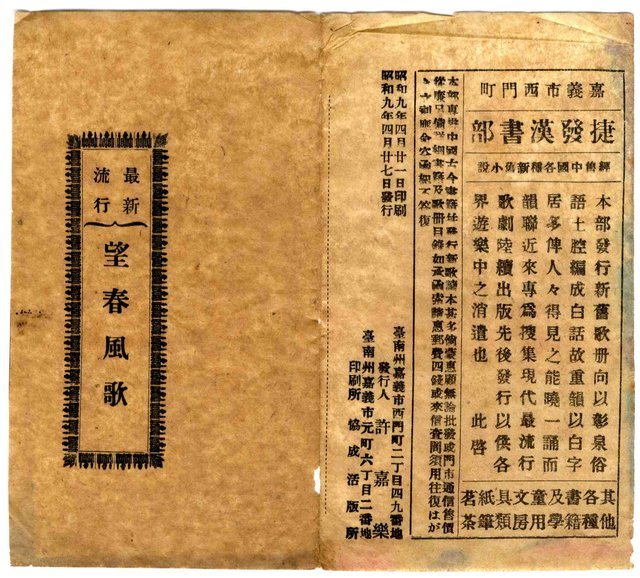 嘉義市西門町
捷發漢書部
經售中國各種新舊小說
本部發行新舊歌册向以彰泉俗
語土腔編成白話故重韻以白字
居多俾人々得見之能曉一誦而
韻聯近來專爲搜集現代最流行
歌劇陸續出版先後發行以供各
界遊樂中之消遣也 此啓
其他各種書籍及學童用文房具類紙筆茗茶
本部專辦中國古今書籍並發行新歌讀本甚多倘蒙惠顧無論批發或門市通信售價
從廉另備詳細書籍及歌册目錄如承函索請惠郵費四錢或來信查問須用往復はが
き 則應命空函恕不答復
昭和九年四月廿一日印刷
昭和九年四月廿七日發行
臺南州嘉義市西門町二丁目四九番地
發行人 許嘉樂
臺南州嘉義市元町六丁目二番地
印刷所 協成活版所
最新流行
望春風歌